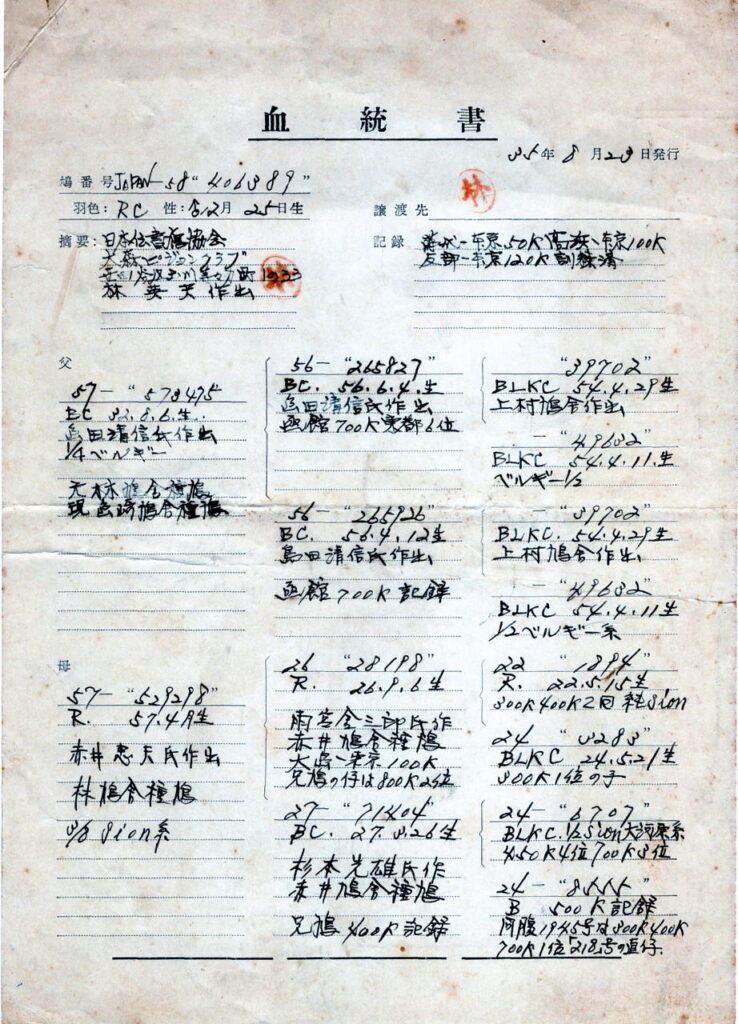 血統書
35年 8月23日発行
鳩番号 JAPAN-58 "406389"
羽色: RC 性: ♂ 2月 25日生
譲渡先
林
摘要: 日本伝書鳩協会
林 英夫 作出
林
記録 東京50K 東京100K
友部-東京120K
父
57- "573475"
BC 32.8.6.生.
島田清信氏作出
1/4ベルギー
元林鳩舎種鳩
現 鳩舎種鳩
56- "265827"
BC. 56.6.4.生
島田清信氏作出
函館700K東都6位
56- "265926"
BC. 56.4.12生
島田清信氏作出
函館700K記録
"39702"
BLKC 54.4.29生
上村鳩舎作出
- "49632"
BLKC 54.4.11.生
ベルギー1/2
- "39702"
BLKC. 54.4.29生
上村鳩舎作出
- "49632"
BLKC 54.4.11生
1/2ベルギー系
母
57- "529298"
R. 57.4月生
赤井 忠夫氏作出
林鳩舎種鳩
3/8 Sion系
26 "28198"
R. 26.9.6生
雨宮金三郎氏作
赤井鳩舎種鳩
大島-東京100K
兄鳩の仔は800K2位
27- "71404"
BC. 27.3.26生
杉本光雄氏作
赤井鳩舎種鳩
兄鳩400K記録
22 "1894"
R. 22.5.15生
300K400K2回 純Sion
24 "3283"
BLKC 24.5.21生
300K1位の子
24- "6707"
BLKC. 1/2Sion大河原系
450K4位700K3位
24- "8555"
B 500K記録
同腹1945号は300K400K
700K1位「218」号の直仔.